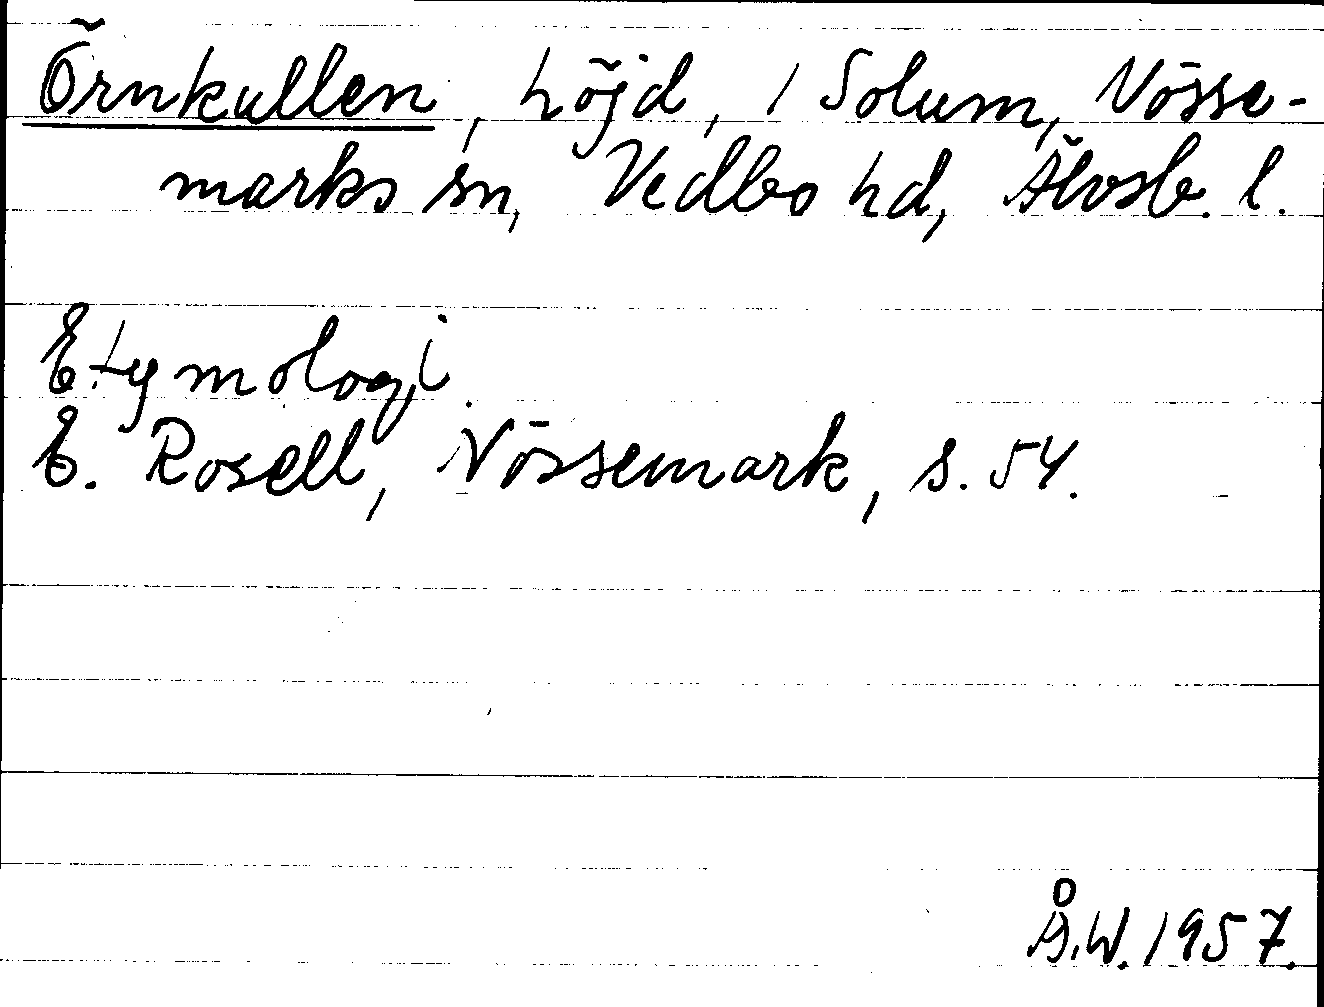 Örnkullen, höjd, 1 Solum, Nösse-
marks sn, Vedbo hd, Älvsb. l.
Etymologi.
E. Rosell, Nössemark, s. 54.
Å.W. 1957.